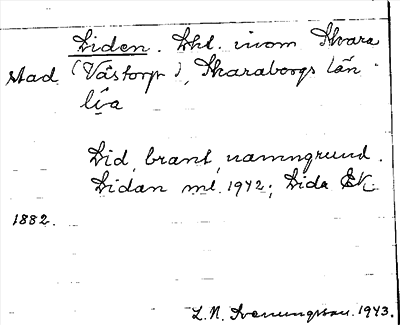 Liden. Lht. inom Skara
stad (Västorp), Skaraborgs län
līa
Lid, brant, namngrund.
Lidan ml. 1942; Lida EK
1882.
L. N. Svenungsson. 1943.